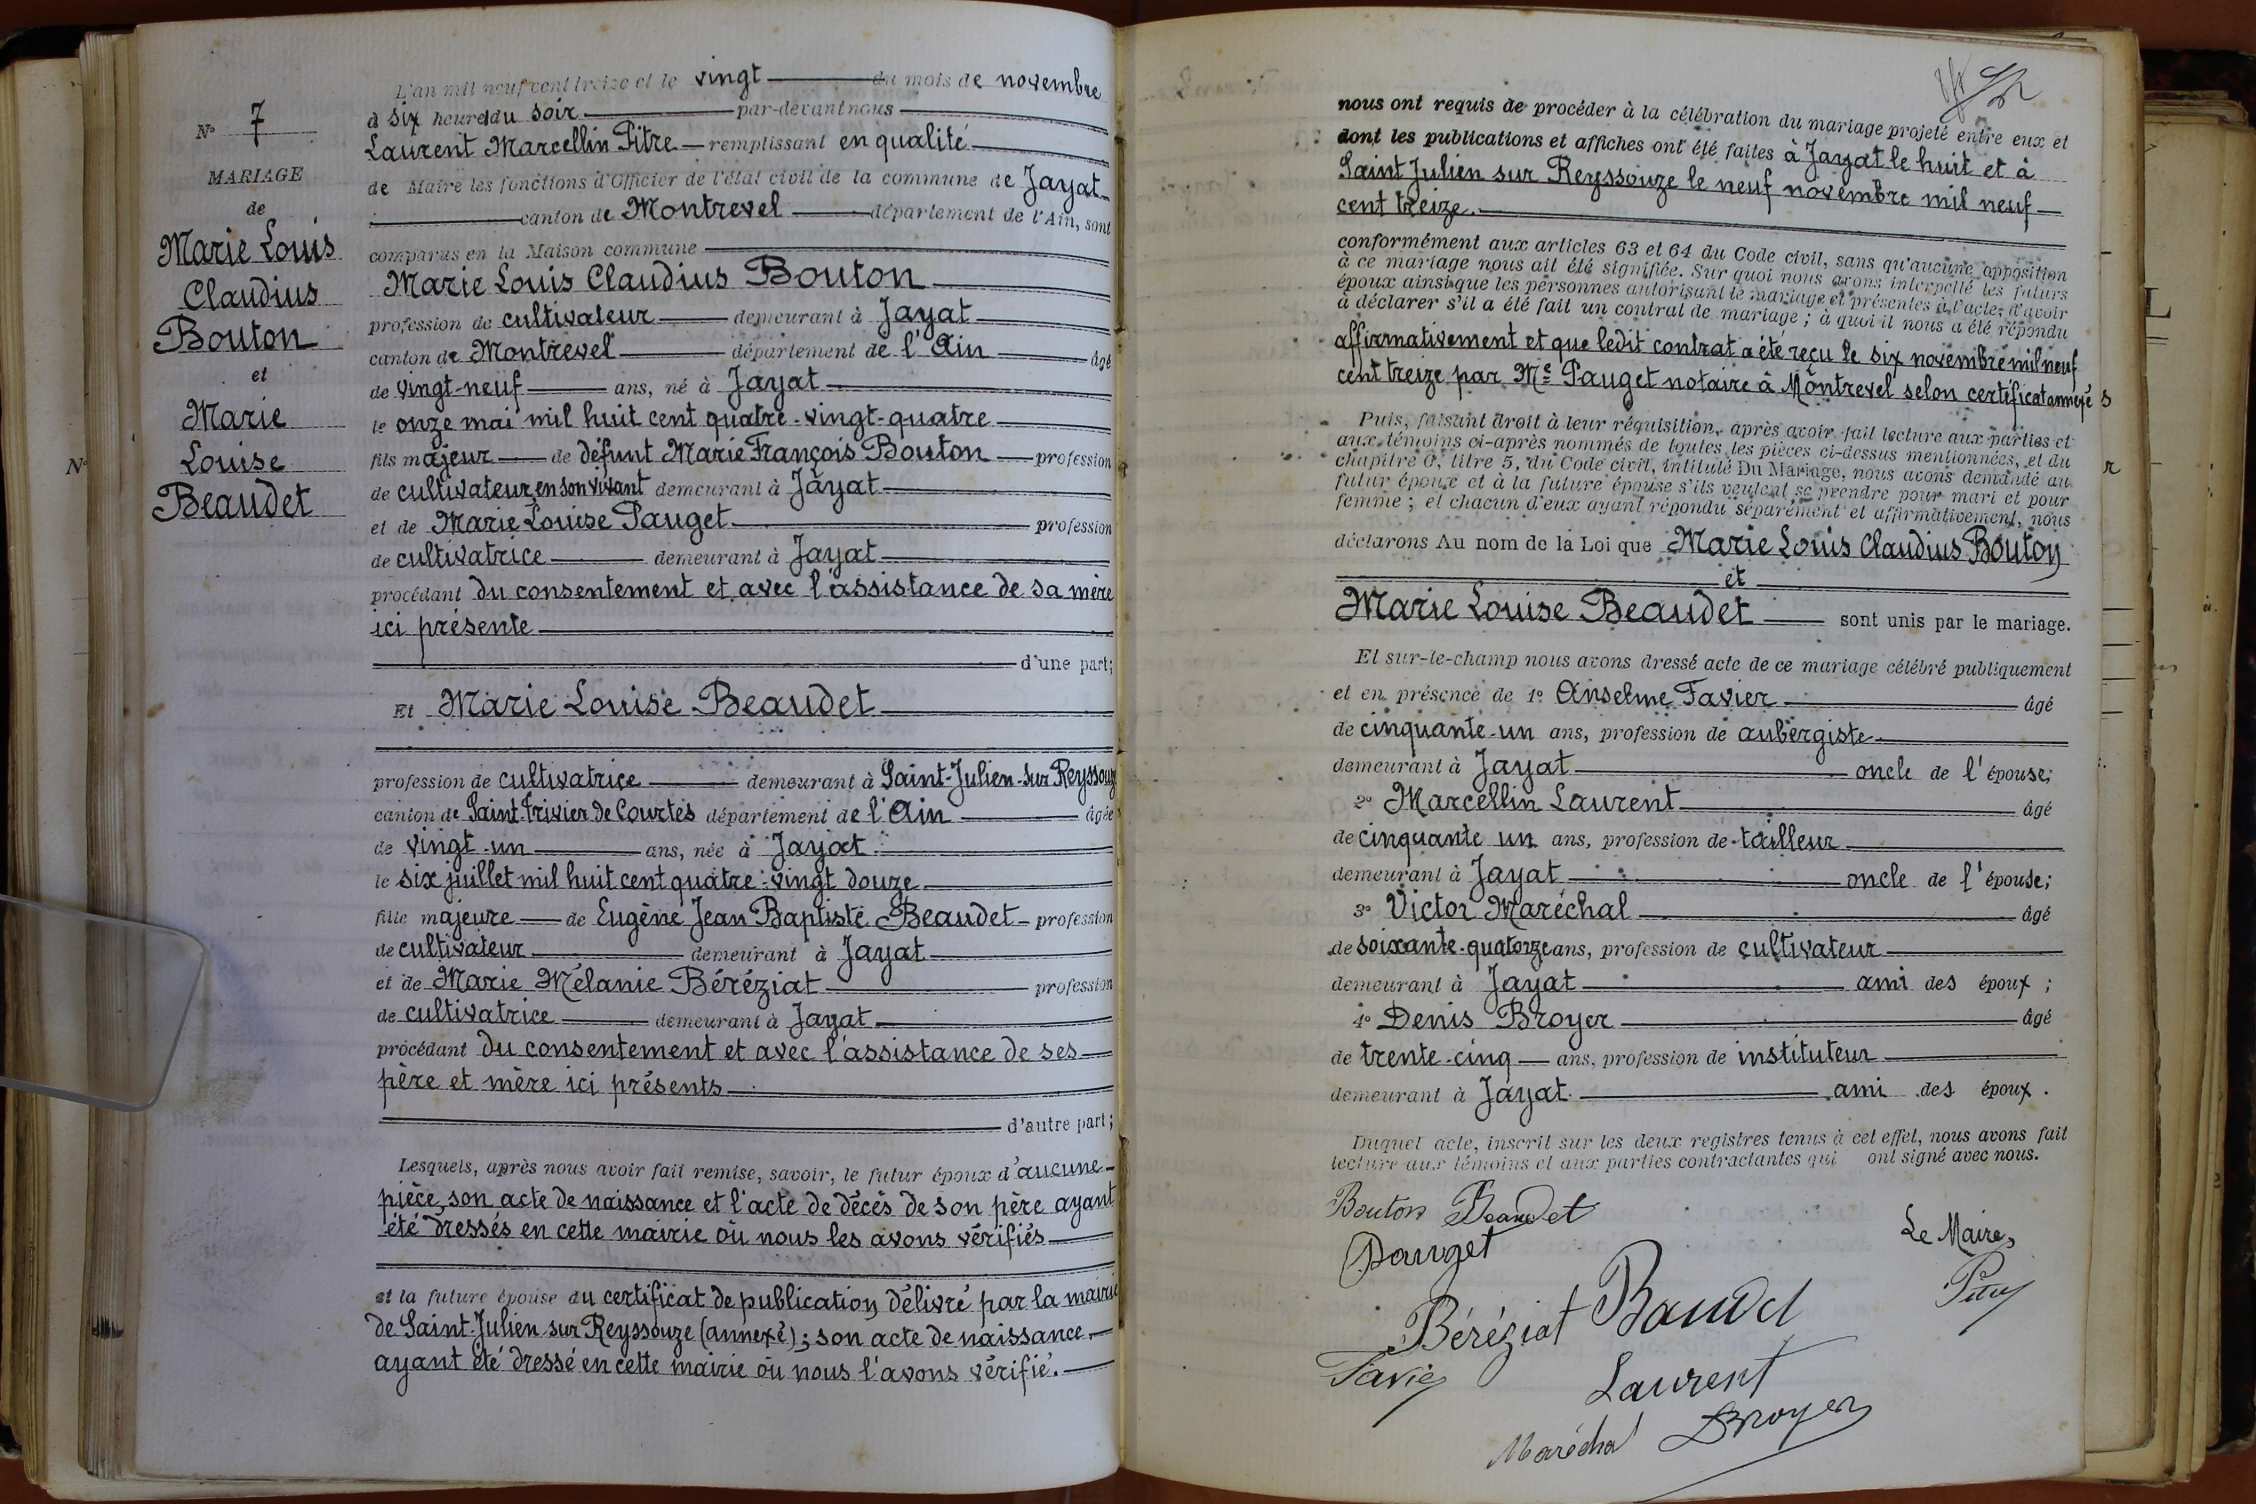 N° 7
MARIAGE
de
Marie Louis
Claudius
Bouton
et
Marie
Louise
Beaudet
L'an mil neuf cent treize et le vingt du mois de novembre
à six heures du soir par-devant nous
Laurent Marcellin Pitre remplissant en qualité
de Maire les fonctions d'Officier de l'état civil de la commune de Jayat
canton de Montrevel département de l'Ain, sont
comparus en la Maison commune
Marie Louis Claudius Bouton
profession de cultivateur demeurant à Jayat
canton de Montrevel département de l'Ain âgé
de vingt-neuf ans, né à Jayat
le onze mai mil huit cent quatre-vingt-quatre
fils majeur de défunt Marie François Bouton profession
de cultivateur en son vivant demeurant à Jayat
et de Marie Louise Pauget profession
de cultivatrice demeurant à Jayat
procédant du consentement et avec l'assistance de sa mère
ici présente
d'une part;
Et Marie Louise Beaudet
profession de cultivatrice demeurant à Saint-Julien-sur Reyssouze
canton de Saint-Trivier de Courtes département de l'Ain âgée
de vingt-un ans, née à Jayat
le six juillet mil huit cent quatre-vingt douze
fille majeure de Eugène Jean Baptiste Beaudet profession
de cultivateur demeurant à Jayat
et de Marie Mélanie Béréziat profession
de cultivatrice demeurant à Jayat
procédant du consentement et avec l'assistance de ses
père et mère ici présents
d'autre part;
Lesquels, après nous avoir fait remise, savoir, le futur époux d'aucune
pièce, son acte de naissance et l'acte de décès de son père ayant
été dressés en cette mairie où nous les avons vérifiés
et la future épouse du certificat de publication délivré par la mairie
de Saint-Julien sur Reyssouze (annexé); son acte de naissance
ayant été dressé en cette mairie où nous l'avons vérifié.
nous ont requis de procéder à la célébration du mariage projeté entre eux et
dont les publications et affiches ont été faites à Jayat le huit et à
Saint Julien sur Reyssouze le neuf novembre mil neuf
cent treize.
conformément aux articles 63 et 64 du Code civil, sans qu'aucune opposition
à ce mariage nous ait été signifiée. Sur quoi nous avons interpellé les futurs
époux ainsi que les personnes autorisant le mariage et présentes à l'acte, d'avoir
à déclarer s'il a été fait un contrat de mariage; à quoi il nous a été répondu
affirmativement et que ledit contrat a été reçu le six novembre mil neuf
cent treize par Me Pauget notaire à Montrevel selon certificat annexé
Puis, faisant droit à leur réquisition, après avoir fait lecture aux parties et
aux témoins ci-après nommés de toutes les pièces ci-dessus mentionnées, et du
chapitre 6, titre 5, du Code civil, intitulé Du Mariage, nous avons demandé au
futur époux et à la future épouse s'ils veulent se prendre pour mari et pour
femme; et chacun d'eux ayant répondu séparément et affirmativement, nous
déclarons Au nom de la Loi que Marie Louis Claudius Bouton
et
Marie Louise Beaudet sont unis par le mariage.
Et sur-le-champ nous avons dressé acte de ce mariage célébré publiquement
et en présence de 1° Anselme Favier âgé
de cinquante-un ans, profession de aubergiste
demeurant à Jayat oncle de l'épouse;
2° Marcellin Laurent âgé
de cinquante un ans, profession de tailleur
demeurant à Jayat oncle de l'épouse;
3° Victor Maréchal âgé
de soixante-quatorze ans, profession de cultivateur
demeurant à Jayat ami des époux;
4° Denis Broyer âgé
de trente-cinq ans, profession de instituteur
demeurant à Jayat ami des époux.
Duquel acte, inscrit sur les deux registres tenus à cet effet, nous avons fait
lecture aux témoins et aux parties contractantes qui ont signé avec nous.
Bouton Beaudet
Pauget
Le Maire,
Béréziat Baudet
Favier
Laurent
Maréchal Broyer